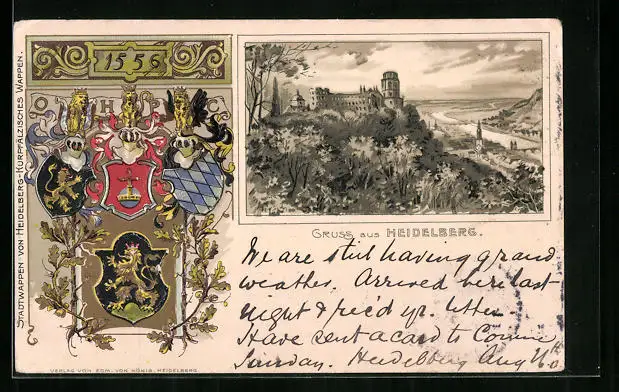 1556
O H P C
STADTWAPPEN VON HEIDELBERG–KURPFÄLZISCHES WAPPEN.
GRUSS aus HEIDELBERG.
We are still having grand
weather. Arrived here last
night & rec'd yr. letter.
Have sent a card to Connie
Sunday. Heidelberg Aug
VERLAG VON EDM. VON KÖNIG, HEIDELBERG.